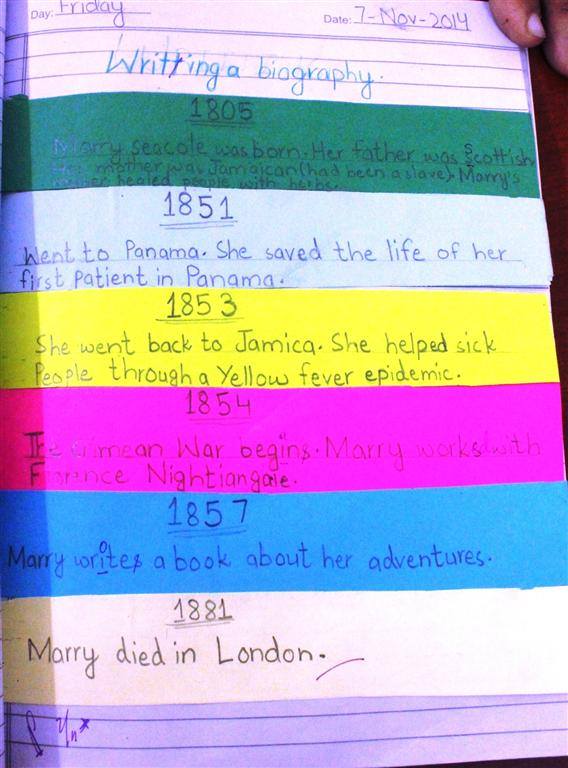 Day: Friday
Date: 7-Nov-2014
Writting a biography.
1805
Marry seacole was born. Her father was Scottish
Her mother was Jamaican (had been a slave). Marry's
mother healed people with herbs.
1851
Went to Panama. She saved the life of her
first Patient in Panama.
1853
She went back to Jamica. She helped sick
People through a Yellow fever epidemic.
1854
The Crimean War begins. Marry works with
Florence Nightiangale.
1857
Marry wrote a book about her adventures.
1881
Marry died in London.